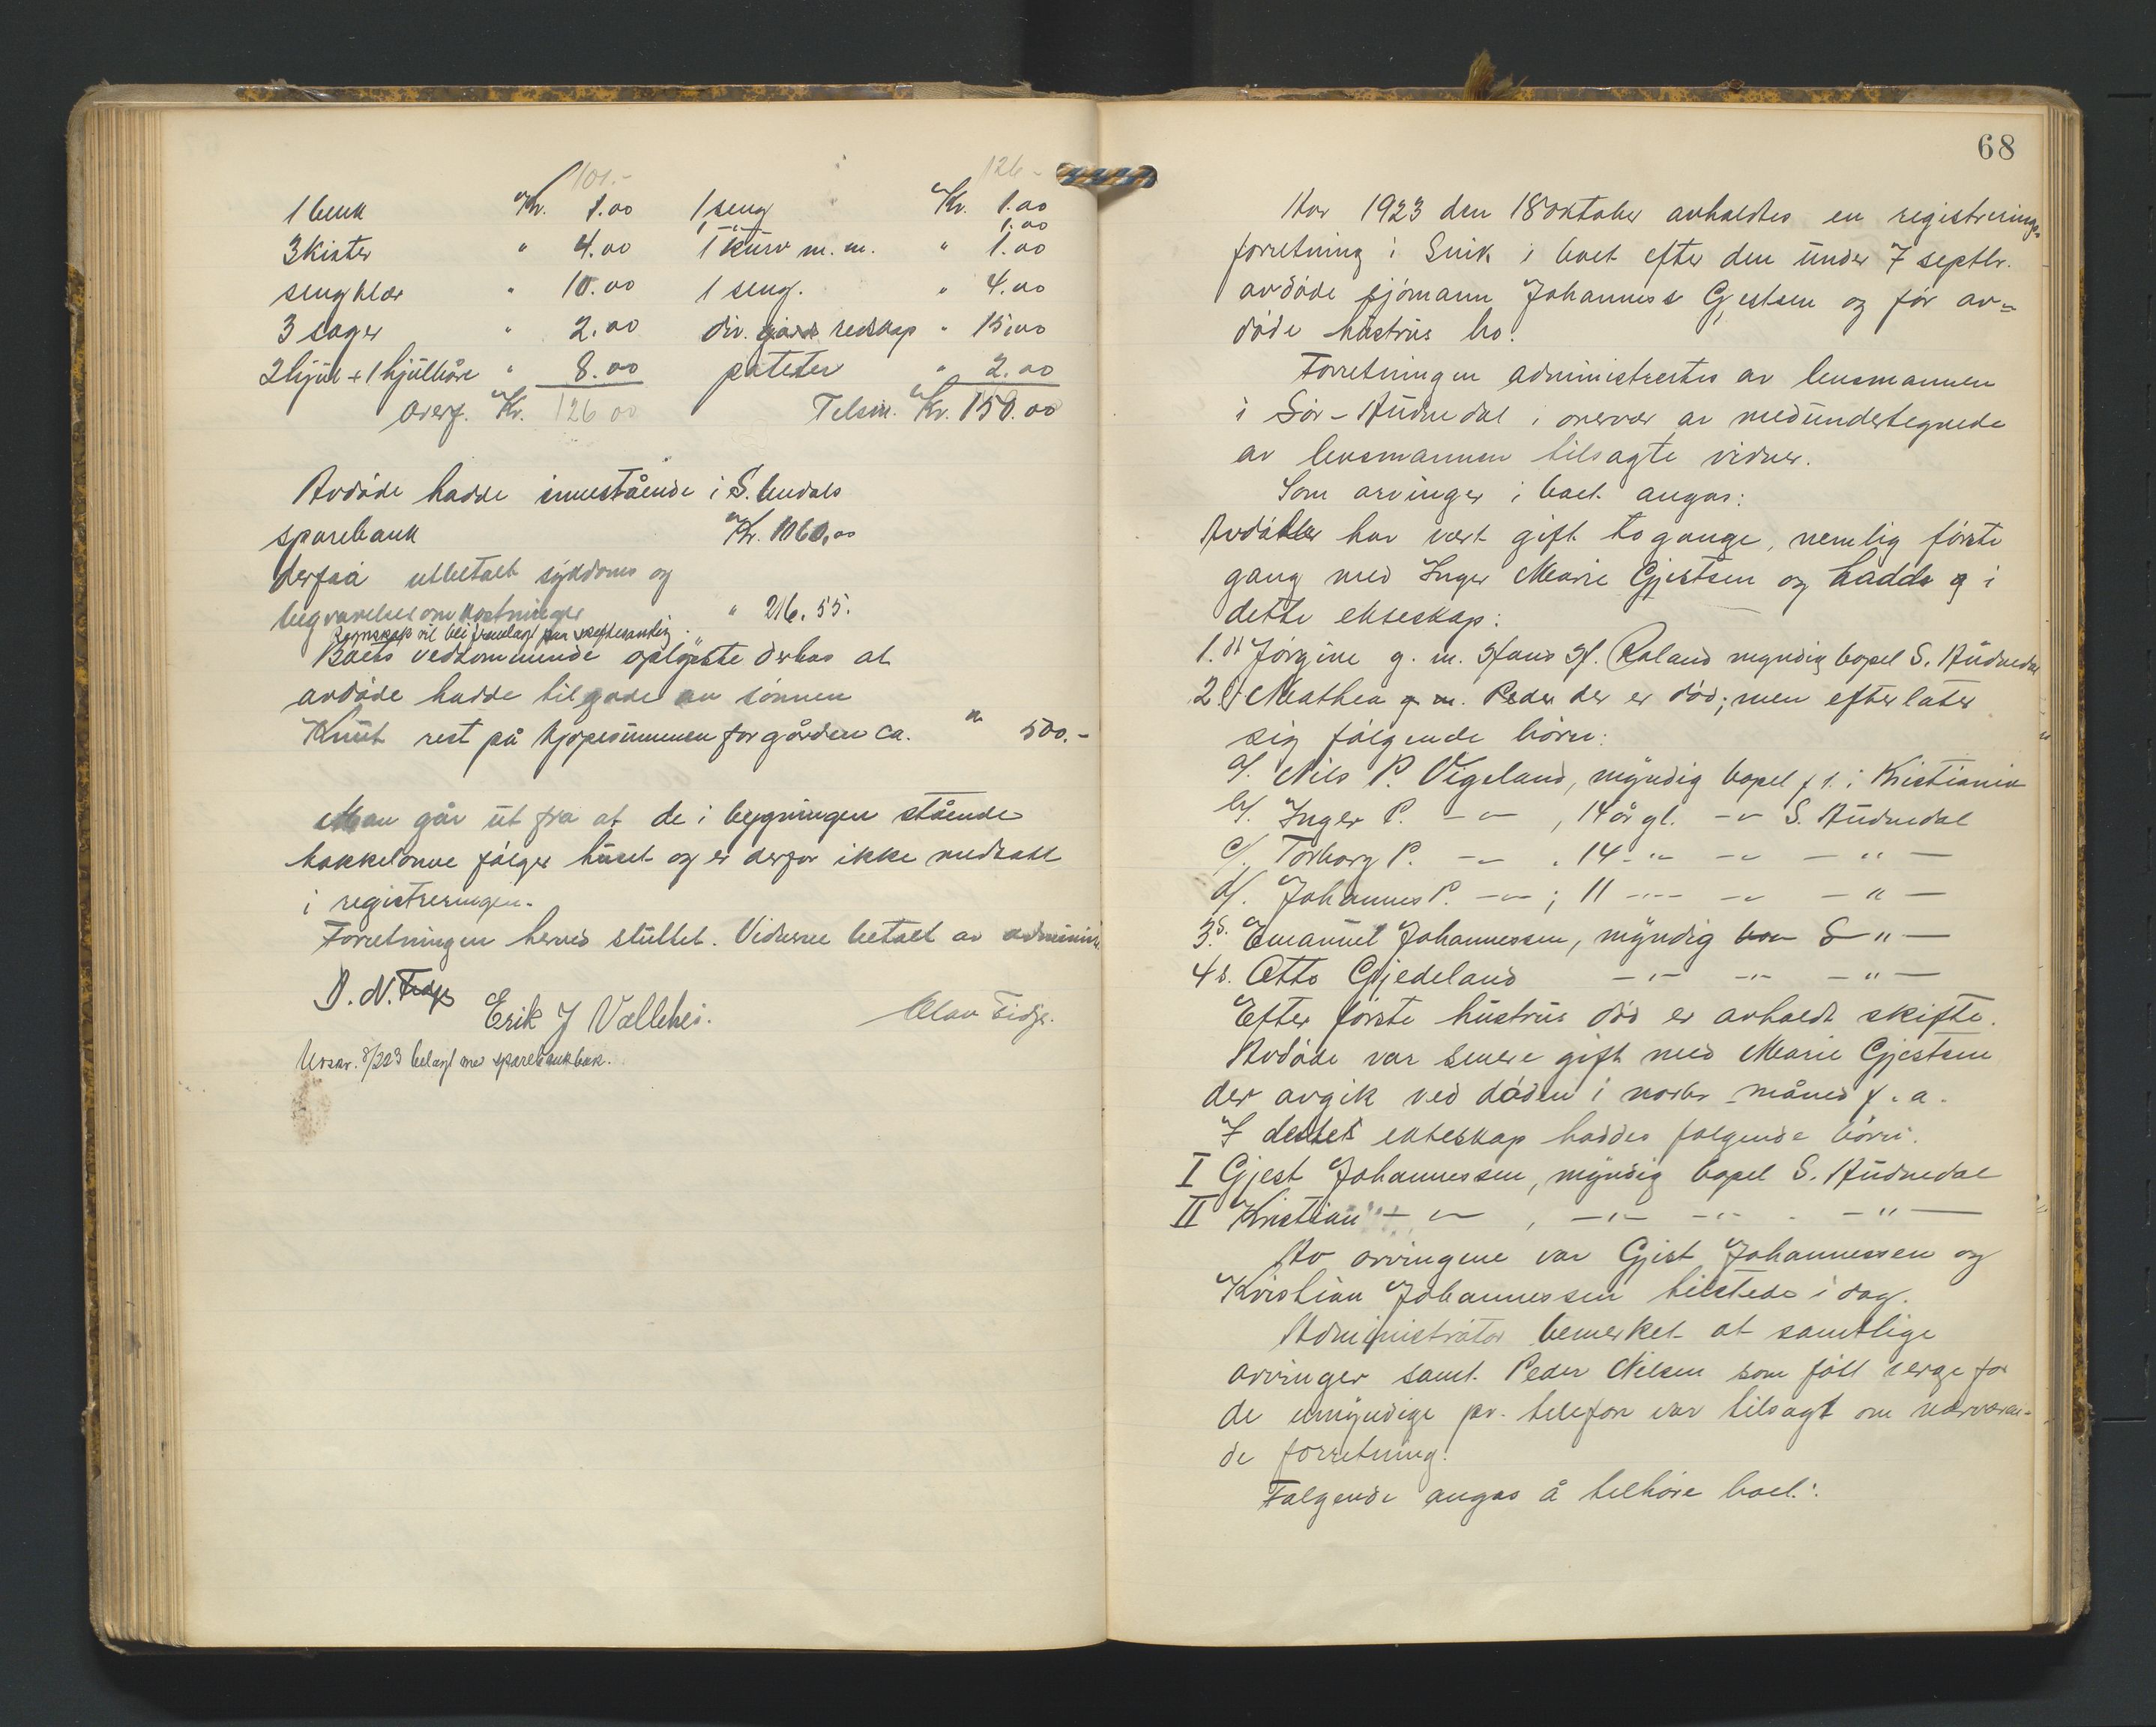 101.-
126-
1 benk Kr. 1.00 1 seng Kr. 1.00
1 -"- 1.00
3 Kister " 4.00 1 kurv m.m. " 1.00
sengklær " 10.00 1 seng. " 4.00
3 sager " 2.00 div. gårds redskap " 15.00
2 hjul + 1 hjulbåre " 8.00 poteter " 2.00
Overf. Kr. 126 00 Tilsm. Kr. 150.00
Avdøde hadde innestående i S. Undals
sparebank Kr. 1060,00
derfra utbetalt sykdoms og
begravelsesomkostninger " 216.55.
Regnskap vil bli fremlagt paa skiftesamling.
Boets vedkommende oplyste derhos at
avdøde hadde tilgode av sønnen
Knut rest på kjøpesummen for gården ca. " 500.-
Man går ut fra at de i bygningen stående
kakkelovne følger huset og er derfor ikke medtatt
i registreringen.
Forretningen herved sluttet. Vidnene betalt av administr
D. N. Fidje Erik J Vallehei. Olav Fidje.
Utskr. 8/223 belagt med sparebankbok.
68
Aar 1923 den 18 oktober avholdtes en registrerings-
forretning i Snik i boet efter den under 7 septbr.
avdøde sjømann Johannes Gjestsen og før av-
døde hustrus bo.
Forretningen administrertes av lensmannen
i Sør-Audnedal i overvær av medundertegnede
av lensmannen tilsagte vidner.
Som arvinger i boet angas:
Avdøde har vært gift to gange, nemlig første
gang med Inger Marie Gjestsen og hadde i
dette ekteskap:
1. dt Jørgine g. m. Hans H. Røland myndig bopel S. Audnedal
2. dt Mathea g. m. Peder der er død; men efterlater
sig følgende børn:
a/. Nils P. Vigeland, myndig bopel f. t. i Kristiania
b/. Inger P. -"- , 14 år gl. -"- S. Audnedal
c/. Torborg P. -"- . 14 -"- -"- -"-
d/. Johannes P. -"- ; 11 -"- -"- -"-
3. s. Emanuel Johannessen, myndig bor S -"-
4 s. Otto Gjedeland -"- -"- -"-
Efter første hustrus død er avholdt skifte.
Avdøde var senere gift med Marie Gjestsen
der avgik ved døden i novbr måned f. a.
I dette ekteskap haddes følgende børn:
I Gjest Johannessen, myndig bopel S. Audnedal
II Kristian -"- , -"- -"- -"-
Av arvingene var Gjest Johannessen og
Kristian Johannessen tilstede i dag.
Administrator bemerket at samtlige
arvinger samt Peder Nilsen som født verge for
de umyndige pr. telefon var tilsagt om nærværen-
de forretning.
Følgende angas å tilhøre boet: